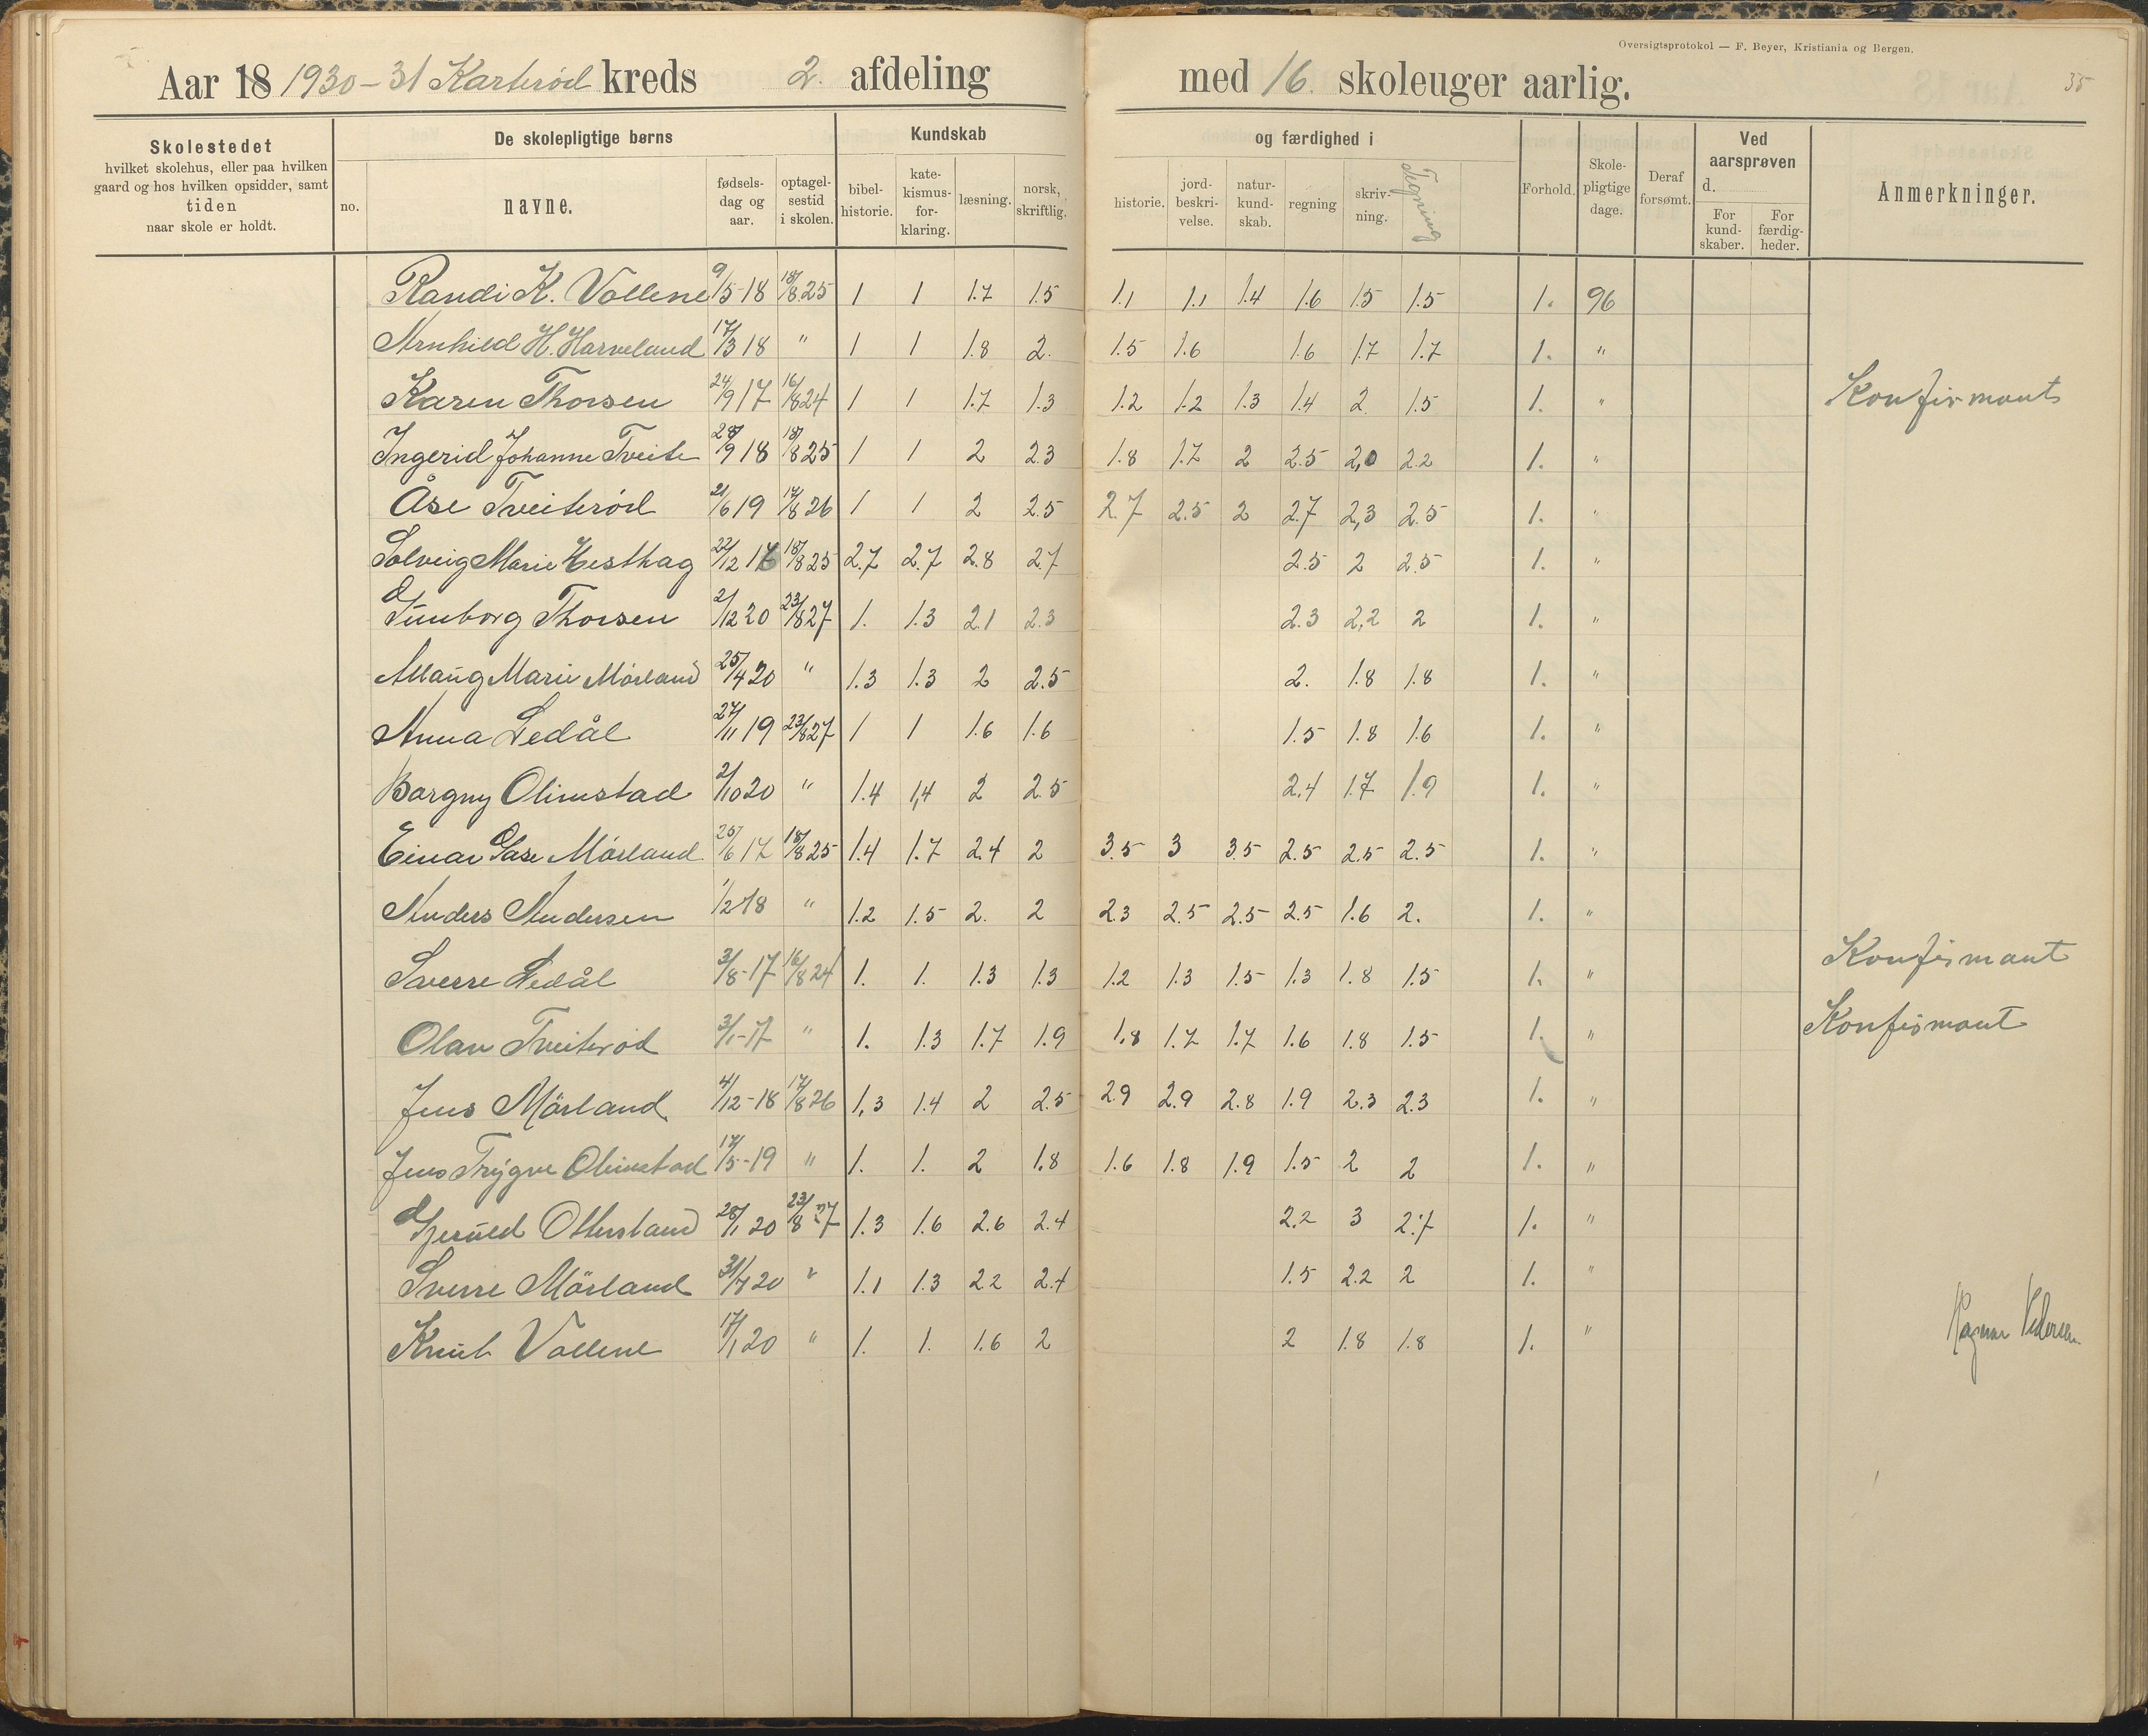 Oversigtsprotokol — F. Beyer, Kristiania og Bergen.
35
Aar 18 1930-31 Karterød kreds 2. afdeling med 16. skoleuger aarlig.
Skolestedet
hvilket skolehus, eller paa hvilken
gaard og hos hvilken opsidder, samt
tiden
naar skole er holdt.
De skolepligtige børns
no.
navne.
fødsels-
dag og
aar.
optagel-
sestid
i skolen.
Kundskab
bibel-
historie.
kate-
kismus-
for-
klaring.
læsning.
norsk,
skriftlig.
og færdighed i
historie.
jord-
beskri-
velse.
natur-
kund-
skab.
regning
skriv-
ning.
Tegning
Forhold.
Skole-
pligtige
dage.
Deraf
forsømt.
Ved
aarsprøven
d.
For
kund-
skaber.
For
færdig-
heder.
Anmerkninger.
Randi K. Vollene 9/5-18 18/8 25 1 1 1.7 1.5 1.1 1.1 1.4 1.6 1.5 1.5 1. 96
Arnhild H. Harveland 17/3 18 " 1 1 1.8 2. 1.5 1.6 1.6 1.7 1.7 1. "
Karen Thorsen 24/9 17 16/8 24 1 1 1.7 1.3 1.2 1.2 1.3 1.4 2 1.5 1. " Konfirmant
Ingerid Johanne Tveite 28/9 18 18/8 25 1 1 2 2.3 1.8 1.7 2 2.5 2,0 2.2 1. "
Åse Tveiterød 21/6 19 17/8 26 1 1 2 2.5 2.7 2.5 2 2.7 2,3 2.5 1. "
Solveig Marie Hesthag 22/12 18/8 25 2.7 2.7 2.8 2.7 2.5 2 2.5 1. "
Gunborg Thorsen 2/12 20 23/8 27 1. 1.3 2.1 2.3 2.3 2,2 2 1. "
Allaug Marie Mörland 25/4 20 " 1.3 1.3 2 2.5 2. 1.8 1.8 1. "
Anna Ledål 27/11 19 23/8 27 1 1 1.6 1.6 1.5 1.8 1.6 1. "
Borgny Olimstad 2/10 20 " 1.4 1,4 2 2.5 2.4 1.7 1.9 1. "
Einar Aase Mörland 25/6 17 18/8 25 1.4 1.7 2.4 2 3.5 3 3.5 2.5 2.5 2.5 1. "
Anders Andersen 1/2 18 " 1.2 1.5 2. 2 2.3 2.5 2.5 2.5 1.6 2. 1. "
Sverre Ledål 3/8-17 16/8 24 1. 1. 1.3 1.3 1.2 1.3 1.5 1.3 1.8 1.5 1. " Konfirmant
Olav Tveiterød 3/1-17 " 1. 1.3 1.7 1.9 1,8 1.7 1.7 1.6 1.8 1.5 1. " Konfirmant
Jens Mörland 4/12-18 17/8 26 1,3 1.4 2 2.5 2.9 2.9 2.8 1.9 2.3 2.3 1. "
Jens Trygve Olimstad 17/5-19 " 1. 1. 2 1.8 1.6 1.8 1.9 1.5 2 2 1. "
Gjeruld Ottersland 28/1 20 23/8 27 1.3 1.6 2.6 2.4 2.2 3 2.7 1. "
Sverre Mörland 31/7 20 " 1.1 1.3 2.2 2.4 1.5 2.2 2 1. "
Knut Vollene 17/1 20 " 1. 1. 1.6 2 2 1.8 1.8 1. "
Ragnar Pedersen